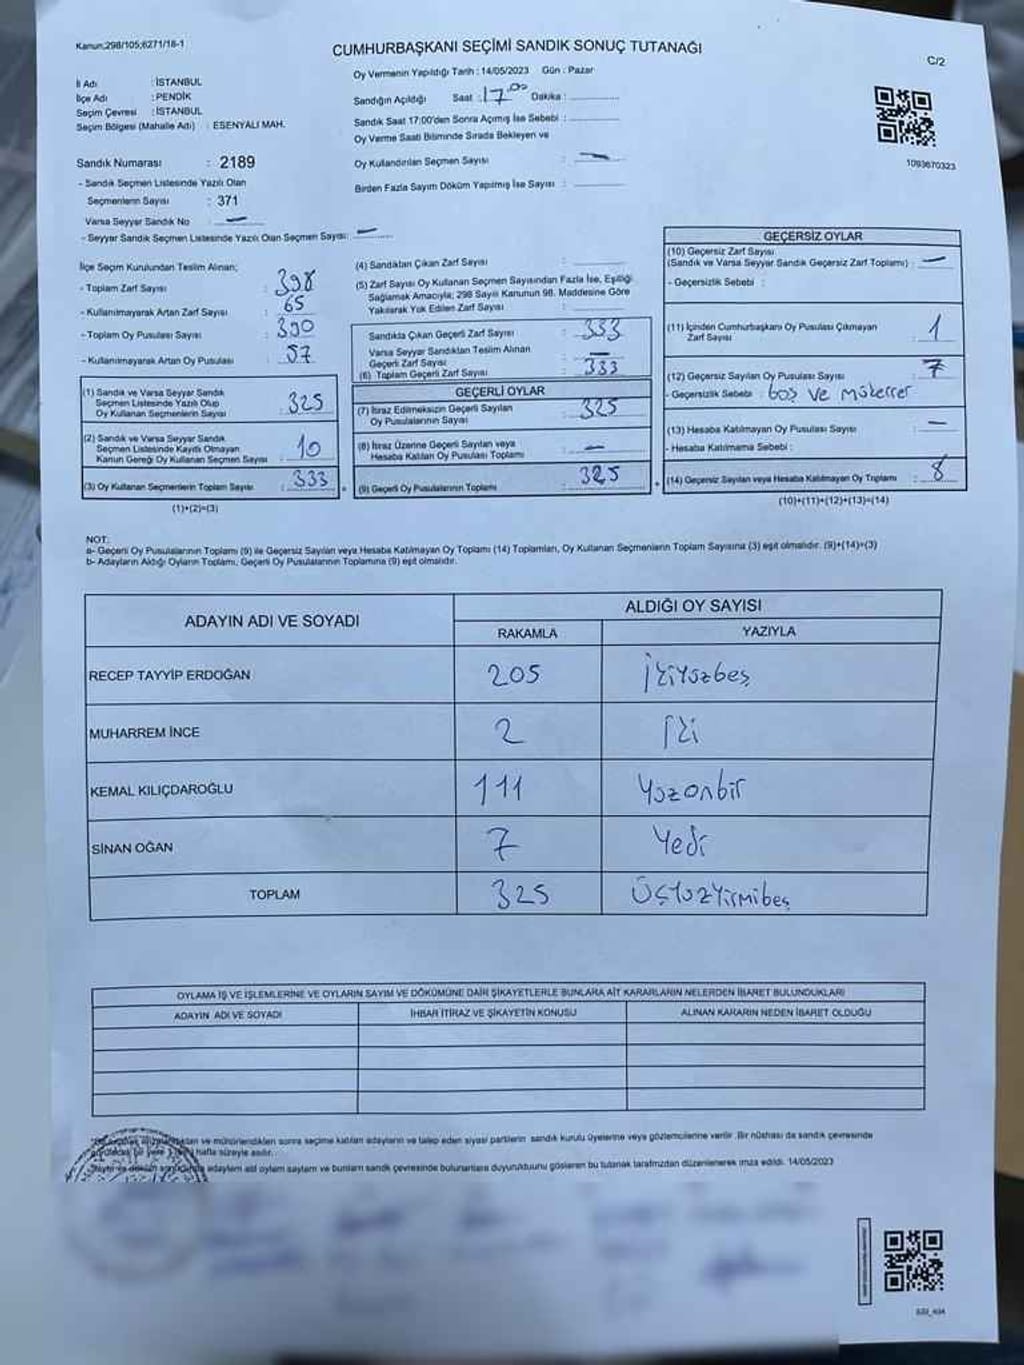 Kanun;298/105;6271/18-1
CUMHURBAŞKANI SEÇİMİ SANDIK SONUÇ TUTANAĞI
C/2
İl Adı : İSTANBUL
İlçe Adı : PENDİK
Seçim Çevresi : İSTANBUL
Seçim Bölgesi (Mahalle Adı) : ESENYALI MAH.
Sandık Numarası : 2189
- Sandık Seçmen Listesinde Yazılı Olan
Seçmenlerin Sayısı : 371
Varsa Seyyar Sandık No : —
- Seyyar Sandık Seçmen Listesinde Yazılı Olan Seçmen Sayısı: —
Oy Vermenin Yapıldığı Tarih : 14/05/2023 Gün : Pazar
Sandığın Açıldığı Saat : 17.00 Dakika :
Sandık Saat 17:00'den Sonra Açımış İse Sebebi :
Oy Verme Saati Bitiminde Sırada Bekleyen ve
Oy Kullandırılan Seçmen Sayısı : —
Birden Fazla Sayım Döküm Yapılmış İse Sayısı :
1093670323
İlçe Seçim Kurulundan Teslim Alınan;
- Toplam Zarf Sayısı : 398
- Kullanılmayarak Artan Zarf Sayısı : 65
- Toplam Oy Pusulası Sayısı : 390
- Kullanılmayarak Artan Oy Pusulası : 57
(1) Sandık ve Varsa Seyyar Sandık
Seçmen Listesinde Yazılı Olup
Oy Kullanan Seçmenlerin Sayısı : 325
(2) Sandık ve Varsa Seyyar Sandık
Seçmen Listesinde Kayıtlı Olmayan
Kanun Gereği Oy Kullanan Seçmen Sayısı : 10
(3) Oy Kullanan Seçmenlerin Toplam Sayısı : 333
(1)+(2)=(3)
(4) Sandıktan Çıkan Zarf Sayısı :
(5) Zarf Sayısı Oy Kullanan Seçmen Sayısından Fazla İse, Eşitliği
Sağlamak Amacıyla; 298 Sayılı Kanunun 98. Maddesine Göre
Yakılarak Yok Edilen Zarf Sayısı :
Sandıkta Çıkan Geçerli Zarf Sayısı : 333
Varsa Seyyar Sandıktan Teslim Alınan
Geçerli Zarf Sayısı : —
(6) Toplam Geçerli Zarf Sayısı : 333
GEÇERLİ OYLAR
(7) İtiraz Edilmeksizin Geçerli Sayılan
Oy Pusulalarının Sayısı : 325
(8) İtiraz Üzerine Geçerli Sayılan veya
Hesaba Katılan Oy Pusulası Toplamı : —
(9) Geçerli Oy Pusulalarının Toplamı : 325
GEÇERSİZ OYLAR
(10) Geçersiz Zarf Sayısı
(Sandık ve Varsa Seyyar Sandık Geçersiz Zarf Toplamı) : —
- Geçersizlik Sebebi :
(11) İçinden Cumhurbaşkanı Oy Pusulası Çıkmayan
Zarf Sayısı : 1
(12) Geçersiz Sayılan Oy Pusulası Sayısı : 7
- Geçersizlik Sebebi : boş ve mükerrer
(13) Hesaba Katılmayan Oy Pusulası Sayısı : —
- Hesaba Katılmama Sebebi :
(14) Geçersiz Sayılan veya Hesaba Katılmayan Oy Toplamı : 8
(10)+(11)+(12)+(13)=(14)
NOT:
a- Geçerli Oy Pusulalarının Toplamı (9) ile Geçersiz Sayılan veya Hesaba Katılmayan Oy Toplamı (14) Toplamları, Oy Kullanan Seçmenlerin Toplam Sayısına (3) eşit olmalıdır. (9)+(14)=(3)
b- Adayların Aldığı Oyların Toplamı, Geçerli Oy Pusulalarının Toplamına (9) eşit olmalıdır.
ADAYIN ADI VE SOYADI
ALDIĞI OY SAYISI
RAKAMLA YAZIYLA
RECEP TAYYİP ERDOĞAN 205 İkiyüzbeş
MUHARREM İNCE 2 İki
KEMAL KILIÇDAROĞLU 111 Yüzonbir
SİNAN OĞAN 7 Yedi
TOPLAM 325 Üçyüzyirmibeş
OYLAMA İŞ VE İŞLEMLERİNE VE OYLARIN SAYIM VE DÖKÜMÜNE DAİR ŞİKAYETLERLE BUNLARA AİT KARARLARIN NELERDEN İBARET BULUNDUKLARI
ADAYIN ADI VE SOYADI İHBAR İTİRAZ VE ŞİKAYETİN KONUSU ALINAN KARARIN NEDEN İBARET OLDUĞU
ve mühürlendikten sonra seçime katılan adayların ve talep eden siyasi partilerin sandık kurulu üyelerine veya gözlemcilerine verilir. Bir nüshası da sandık çevresinde
hafta süreyle asılır.
adayların ad oylarn sayların ve bunların sandık çevresinde bulunanlara duyurulduğunu gösteren bu tutanak tarafımızdan düzenlenerek imza edildi. 14/05/2023